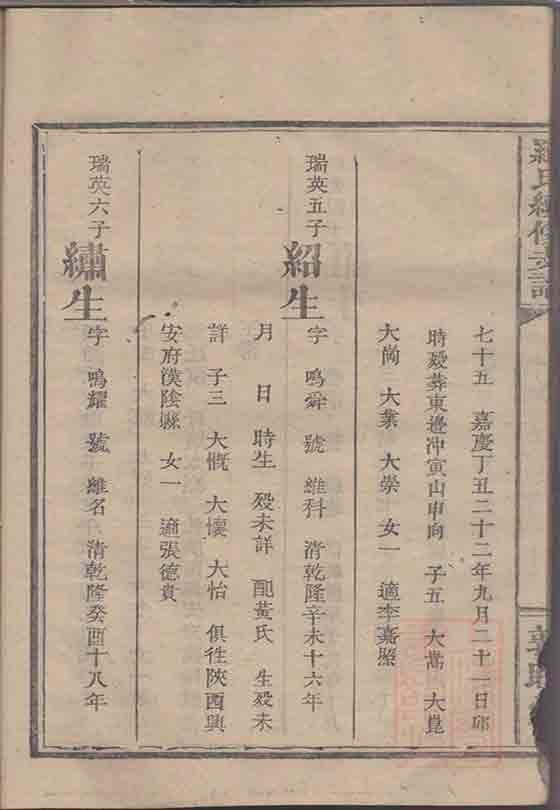 羅氏續修支譜
七十五　嘉慶丁丑二十二年九月二十一日卯
時歿葬東邊冲寅山申向　子五　大嵩　大崑
大崗　大業　大崇　女一　適李嘉照
瑞英五子
紹生
字　鳴舜　號　維科　清乾隆辛未十六年
月　日　時生　歿未詳　配黃氏　生歿未
詳　子三　大慨　大懷　大怡　俱徃陝西興
安府漢陰縣　女一　適張德貴
瑞英六子
繡生
字　鳴耀　號　維名　清乾隆癸酉十八年